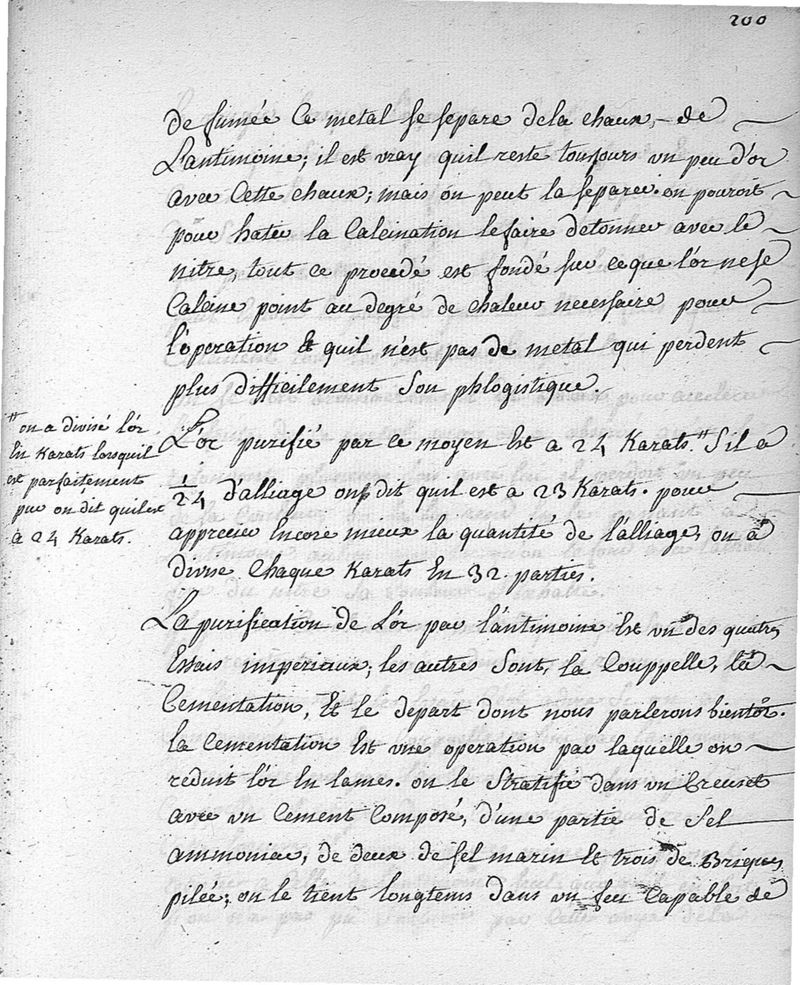 200
de fumée Ce metal se separe dela chaux, de
L'antimoine; il est vray quil reste tousjours un peu d'or
avec Cette chaux; mais on peut la separer. on pouroit
pour hater la Calcination le faire détonner avec le
nitre, tout ce procedé est fondé sur ce que l'or ne se
Calcine point au degré de chaleur necessaire pour
l'operation Et quil n'est pas de metal qui perdent
plus difficilement Son phlogistique.
L'or purifié par ce moyen Est a 24 Karats. " S'il a
1/24 d'alliage on dit quil est a 23 Karats. pour
apprecier Encore mieux la quantité de l'alliage, on a
divise Chaque Karats En 32. parties.
" on a divisé l'or
En Karats lorsquil
est parfaitement
pur on dit quil est
a 24 Karats.
La purification de L'or par l'antimoine Est un des quatre
Essais imperiaux; les autres Sont, la Couppelle, la
Cementation, Et le depart dont nous parlerons bientôt.
la Cementation Est une operation par laquelle on
reduit l'or En lames. on le Stratifie dans un Creuset
avec un Cement Composé, d'une partie de Sel
ammoniac, de deux de sel marin Et trois de Briques
pilée; on le tient longtems dans un feu Capable de